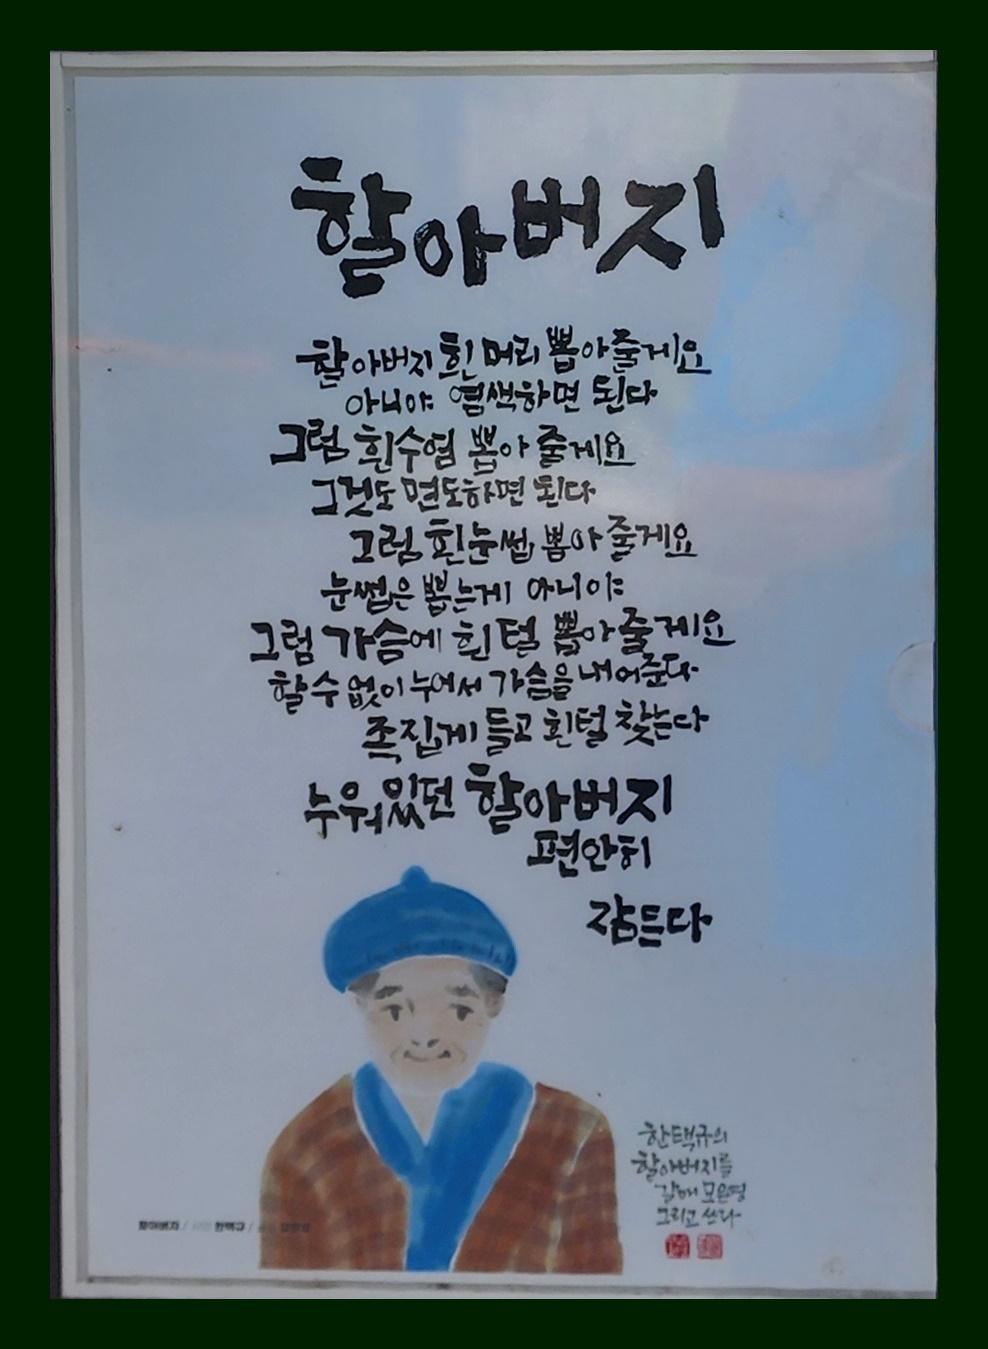 할아버지
할아버지 흰 머리 뽑아 줄게요
아니야 염색하면 된다
그럼 흰수염 뽑아 줄게요
그것도 면도하면 된다
그럼 흰눈썹 뽑아 줄게요
눈썹은 뽑는게 아니야
그럼 가슴에 흰털 뽑아 줄게요
할 수 없이 누어서 가슴을 내어준다
족집게 들고 흰털 찾는다
누워있던 할아버지
편안히
잠든다
한택규의
할아버지를
갈매 모은영
그리고 쓰다
할아버지 / 한택규 /